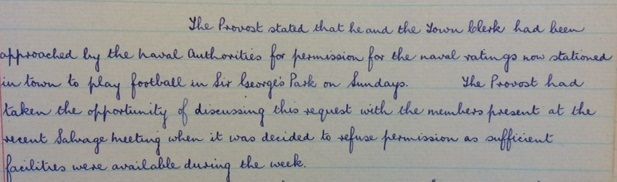 The Provost stated that he and the Town Clerk had been
approached by the naval Authorities for permission for the naval ratings now stationed
in town to play football in Sir George's Park on Sundays. The Provost had
taken the opportunity of discussing this request with the members present at the
recent Salvage meeting when it was decided to refuse permission as sufficient
facilities were available during the week.